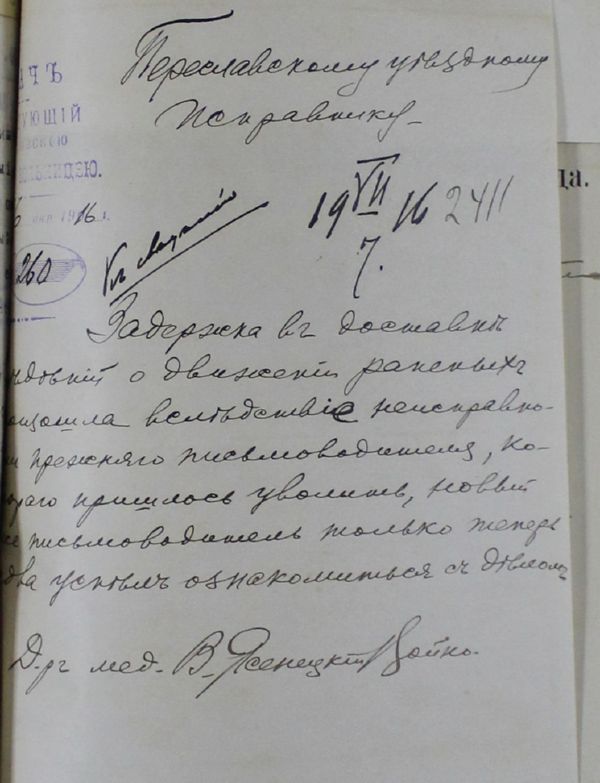 Переславскому уѣздному
Исправнику
ЧЪ
УЮЩІЙ
ЬНИЦЕЮ.
16 г.
260
Къ свѣдѣнію
19 VII/7. 16
2411
да.
Задержка въ доставкѣ
о движеніи раненыхъ
вслѣдствіе неисправно-
прежняго письмоводителя, ко-
раго пришлось уволить, новый
письмоводитель только теперь
два успѣлъ ознакомиться съ дѣломъ
Д-ръ мед. В. Ясенецкій Войно.